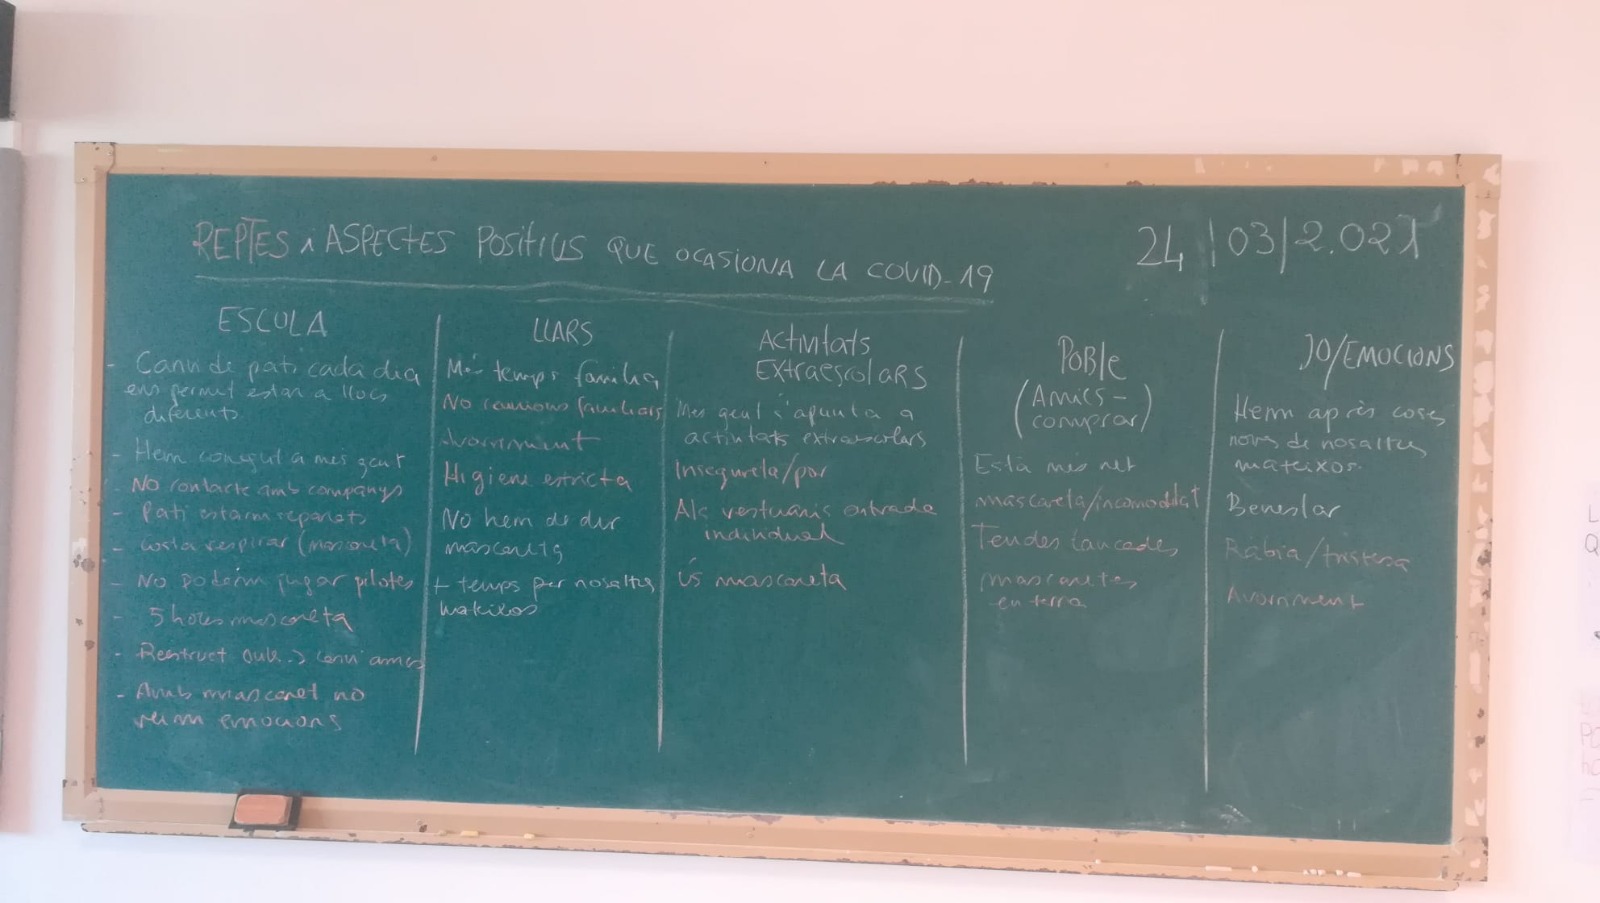 REPTES i ASPECTES POSITIUS QUE OCASIONA LA COVID-19
24/03/2.021
ESCOLA
- Canvi de pati cada dia
ens permet estar a llocs
diferents
- Hem conegut a més gent
- No contacte amb companys
- Pati estarem separats
- Costa respirar (mascareta)
- No podem jugar pilotes
- 5 hores mascareta
- Restruct aula -> canvi
- Amb mascaret no
veim emocions
LLARS
Més temps família
No reunions familiars
Avorriment
Higiene estricta
No hem de dur
mascareta
+ temps per nosaltres
mateixos
Activitats
Extraescolars
Mes gent s'apunta a
activitats extraescolars
Inseguretat/por
Als vestuaris entrada
individual
Ús mascareta
Poble
(Amics -
comprar)
Està més net
mascareta/incomoditat
Tendes tancades
mascaretes
en terra
JO/EMOCIONS
Hem après coses
noves de nosaltres
mateixos.
Benestar
Ràbia/tristesa
Avorriment